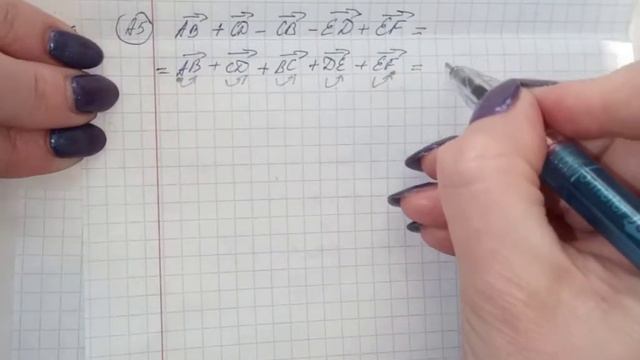 A5 AB + CD - CB - ED + EF =
= AB + CD + BC + DE + EF =